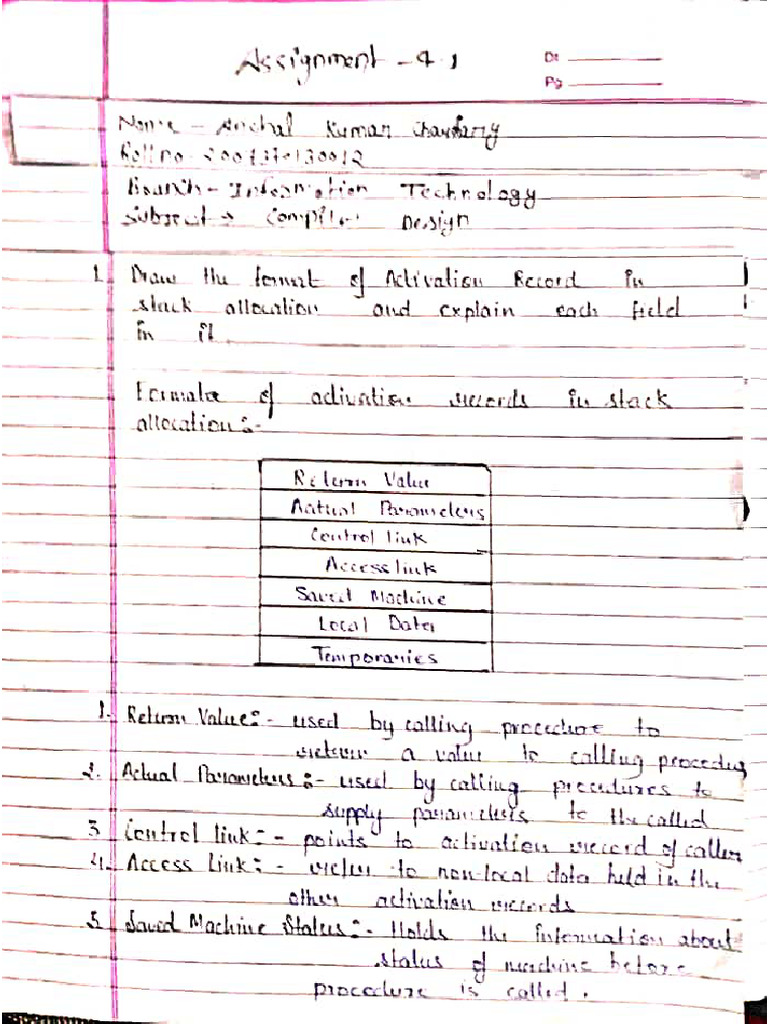 Assignment - 4.1
Dt
Pg
Name - Anchal Kumar Chaudhary
Roll no.
Branch - Information Technology
Subject → Compiler Design
1. Draw the format of Activation Record in
stack allocation and explain each field
in it.
of activation records in stack
allocation :-
Return Value
Actual Parameters
Control link
Access link
Saved Machine
Local Data
Temporaries
1. Return Value :- used by calling procedure to
return a value to calling procedure
2. Actual Parameters :- used by calling procedures to
supply parameters to the called
3. Control link :- points to activation record of caller
4. Access Link :- refer to non-local data held in the
other activation records
5. Saved Machine Status :- Holds the information about
status of machine before
procedure is called.